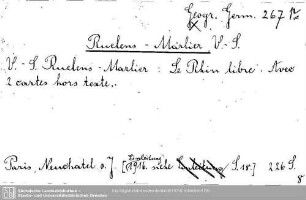 Geogr. Germ. 267 m
Ruelens - Marlier V.-S.
V.-S. Ruelens-Marlier : Le Rhin libre. Avec
2 cartes hors texte.
Einleitung
Paris, Neuchatel o. J. [1916. siehe S. 18.] 226 S.
8
Sächsische Landesbibliothek -
Staats- und Universitätsbibliothek Dresden